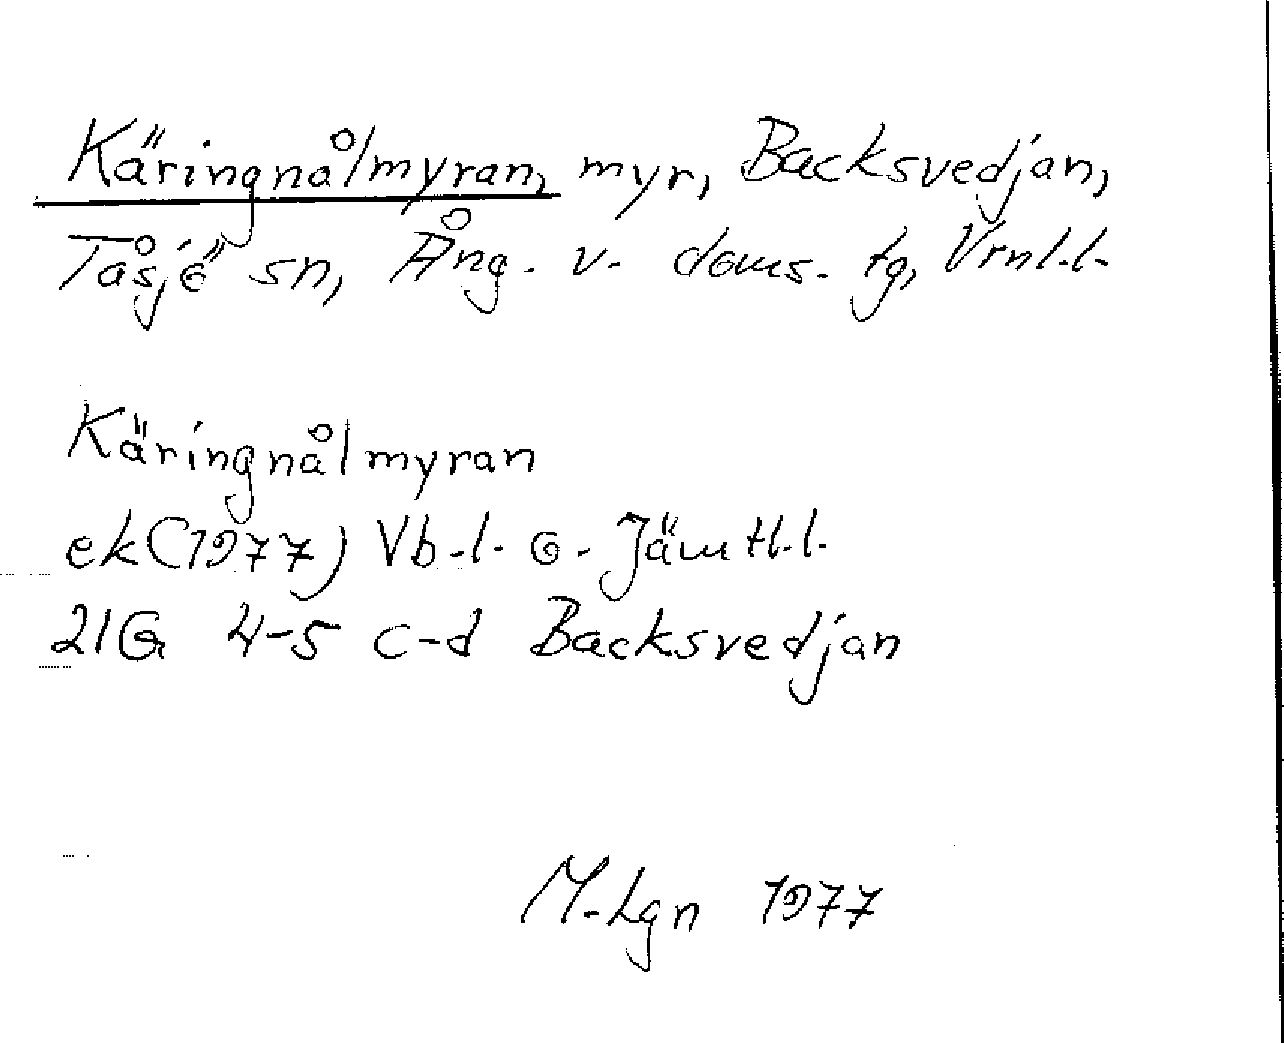 Käringnålmyran, myr, Backsvedjan,
Tåsjö sn, Ång. v. doms. tg, Vrnl.l.
Käringnålmyran
ek (1977) Vb.l. o. Jämtl.l.
21G 4-5 c-d Backsvedjan
M. Lgn 1977